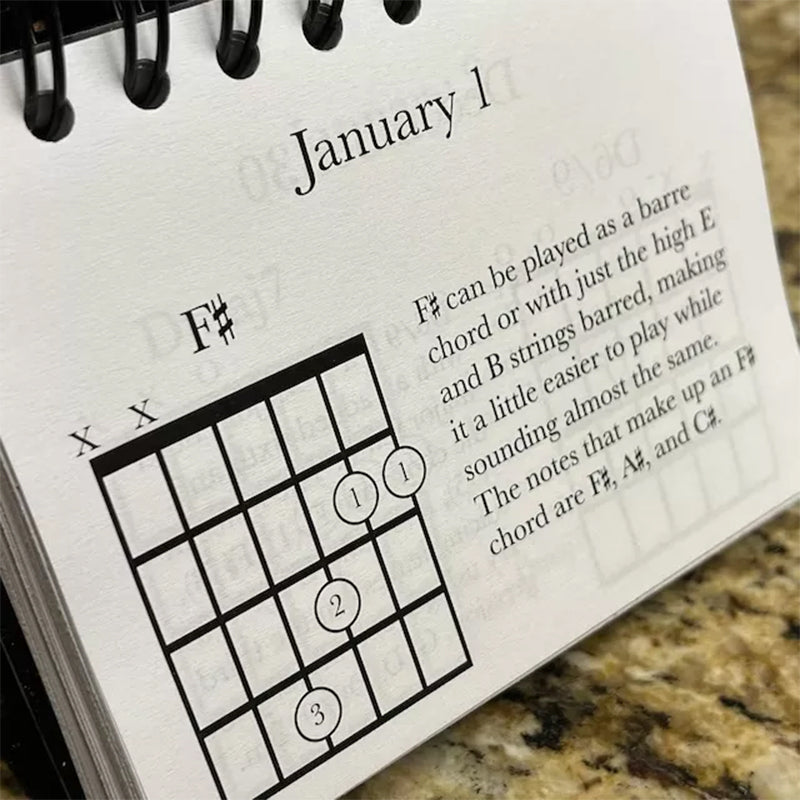 January 1
F♯
X X
1 1
2
3
F♯ can be played as a barre
chord or with just the high E
and B strings barred, making
it a little easier to play while
sounding almost the same.
The notes that make up an F♯
chord are F♯, A♯, and C♯.